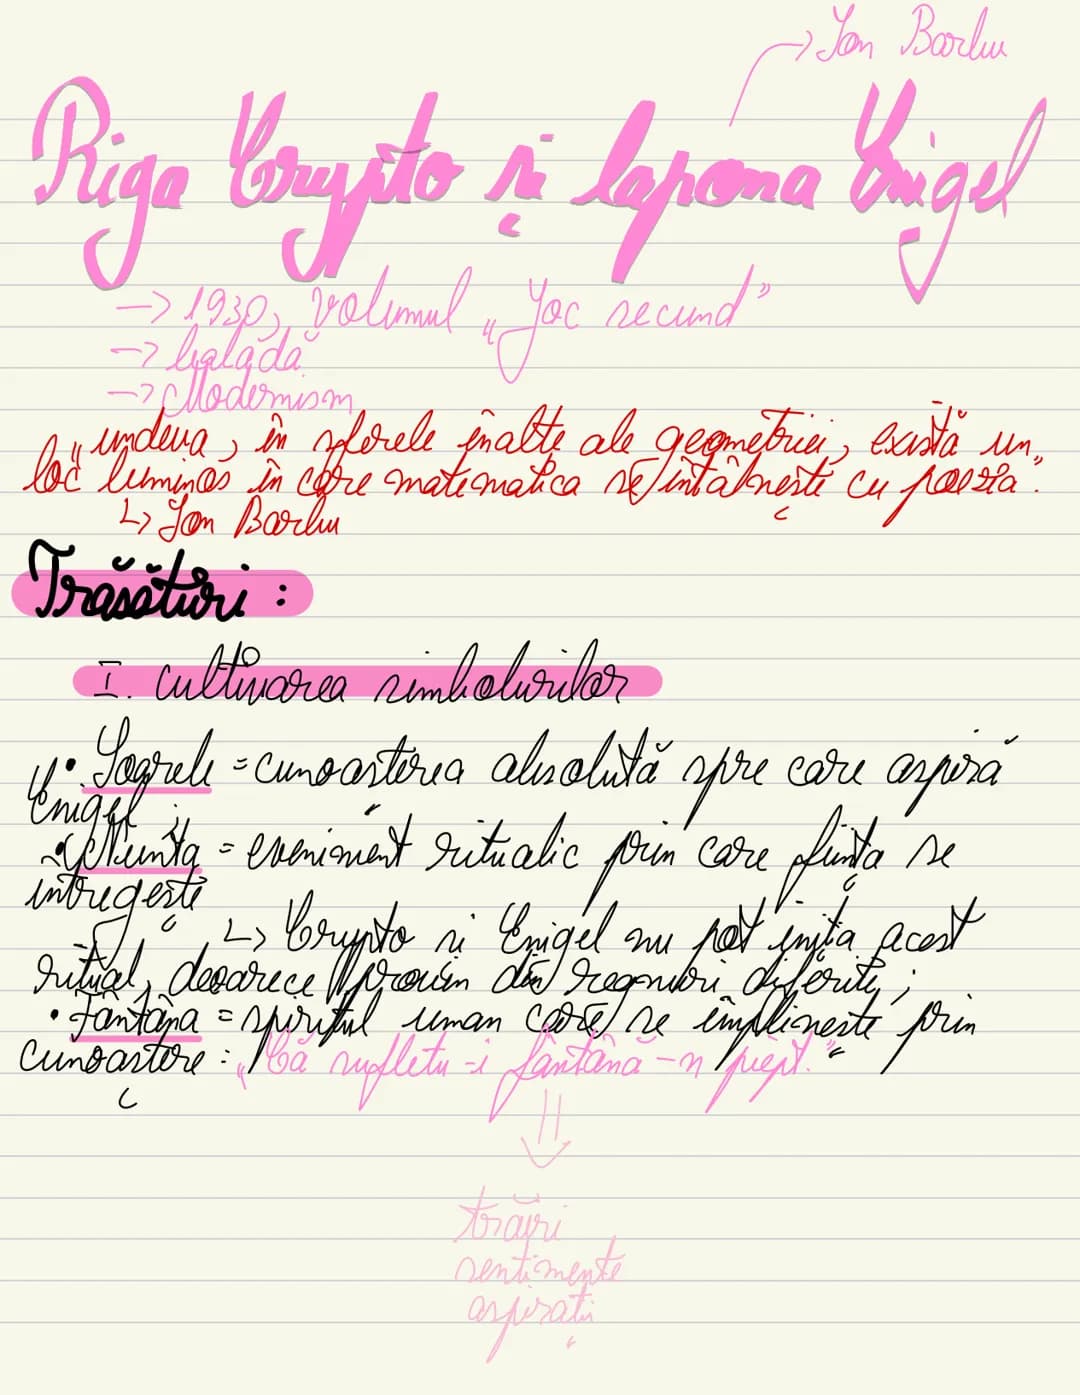 → Ion Barbu
Riga Crypto și lapona Enigel
→ 1930, volumul „Joc secund”
→ baladă
→ Modernism
„undeva, în sferele înalte ale geometriei, există un
loc luminos în care matematica se întâlnește cu poezia”.
↳ Ion Barbu
Trăsături :
I. cultivarea simbolurilor
• Soarele = cunoasterea absolută spre care aspiră
Enigel ;
• Nunta = eveniment ritualic prin care ființa se
intregește
↳ Crypto si Enigel nu pot iniția acest
ritual, deoarece provin din regnuri diferite ;
• Fântâna = spiritul uman care se împlinește prin
cunoaștere : „Că sufletu-i fântână-n piept.”
⇓
trăiri
sentimente
aspirații